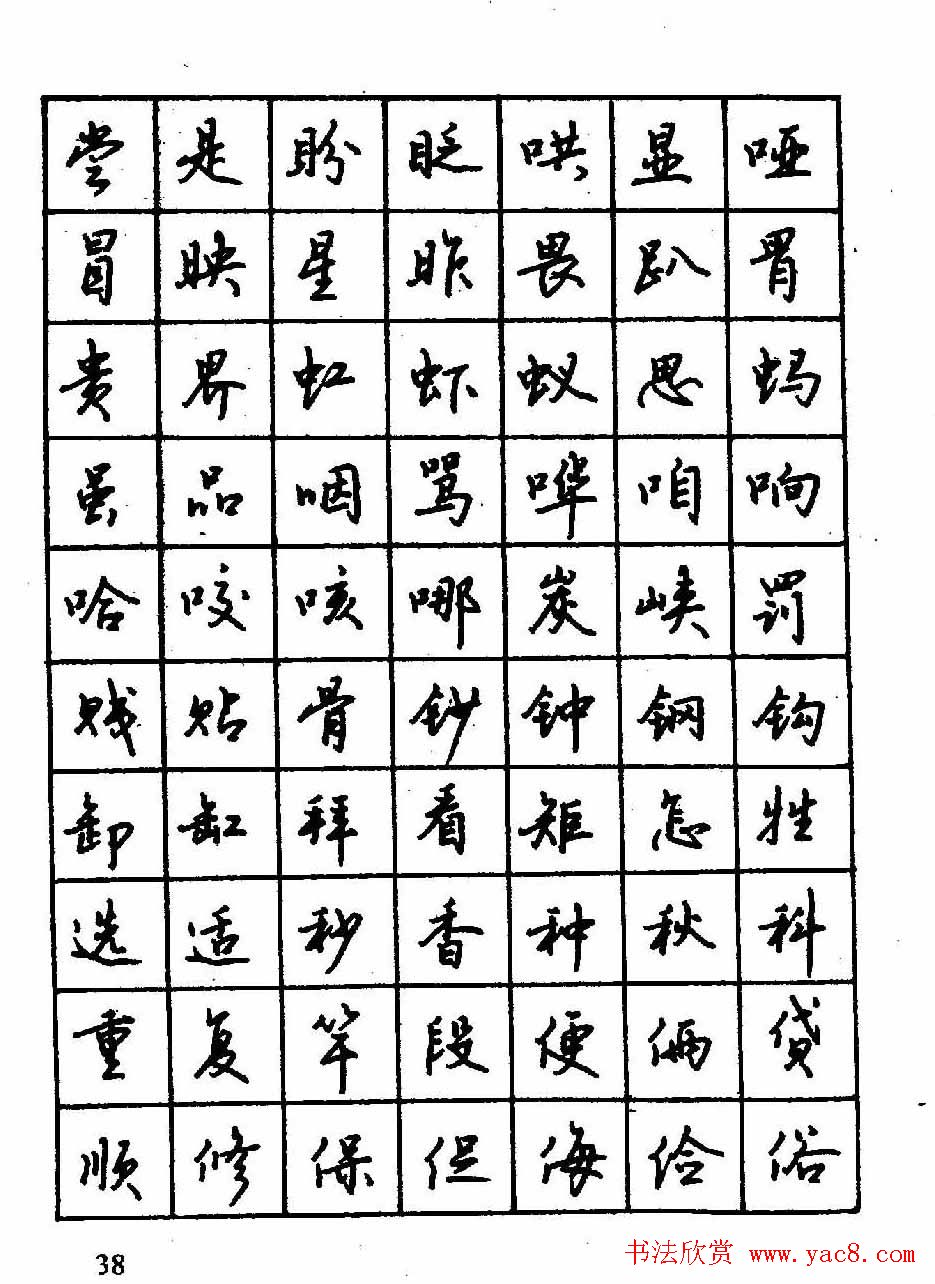 尝是盼眨哄显哑
冒映星昨畏趴胃
贵界虹虾蚁思蚂
虽品咽骂哗咱响
哈咬咳哪炭峡罚
贱贴骨钞钟钢钩
卸缸拜看矩怎牲
选适秒香种秋科
重复竿段便俩贷
顺修保促侮俭俗
38
书法欣赏 www.yac8.com